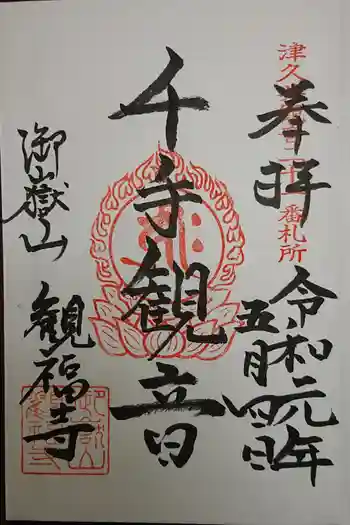 奉拝
津久
番札所
令和元年
五月四日
千手観音
御嶽山
観福寺